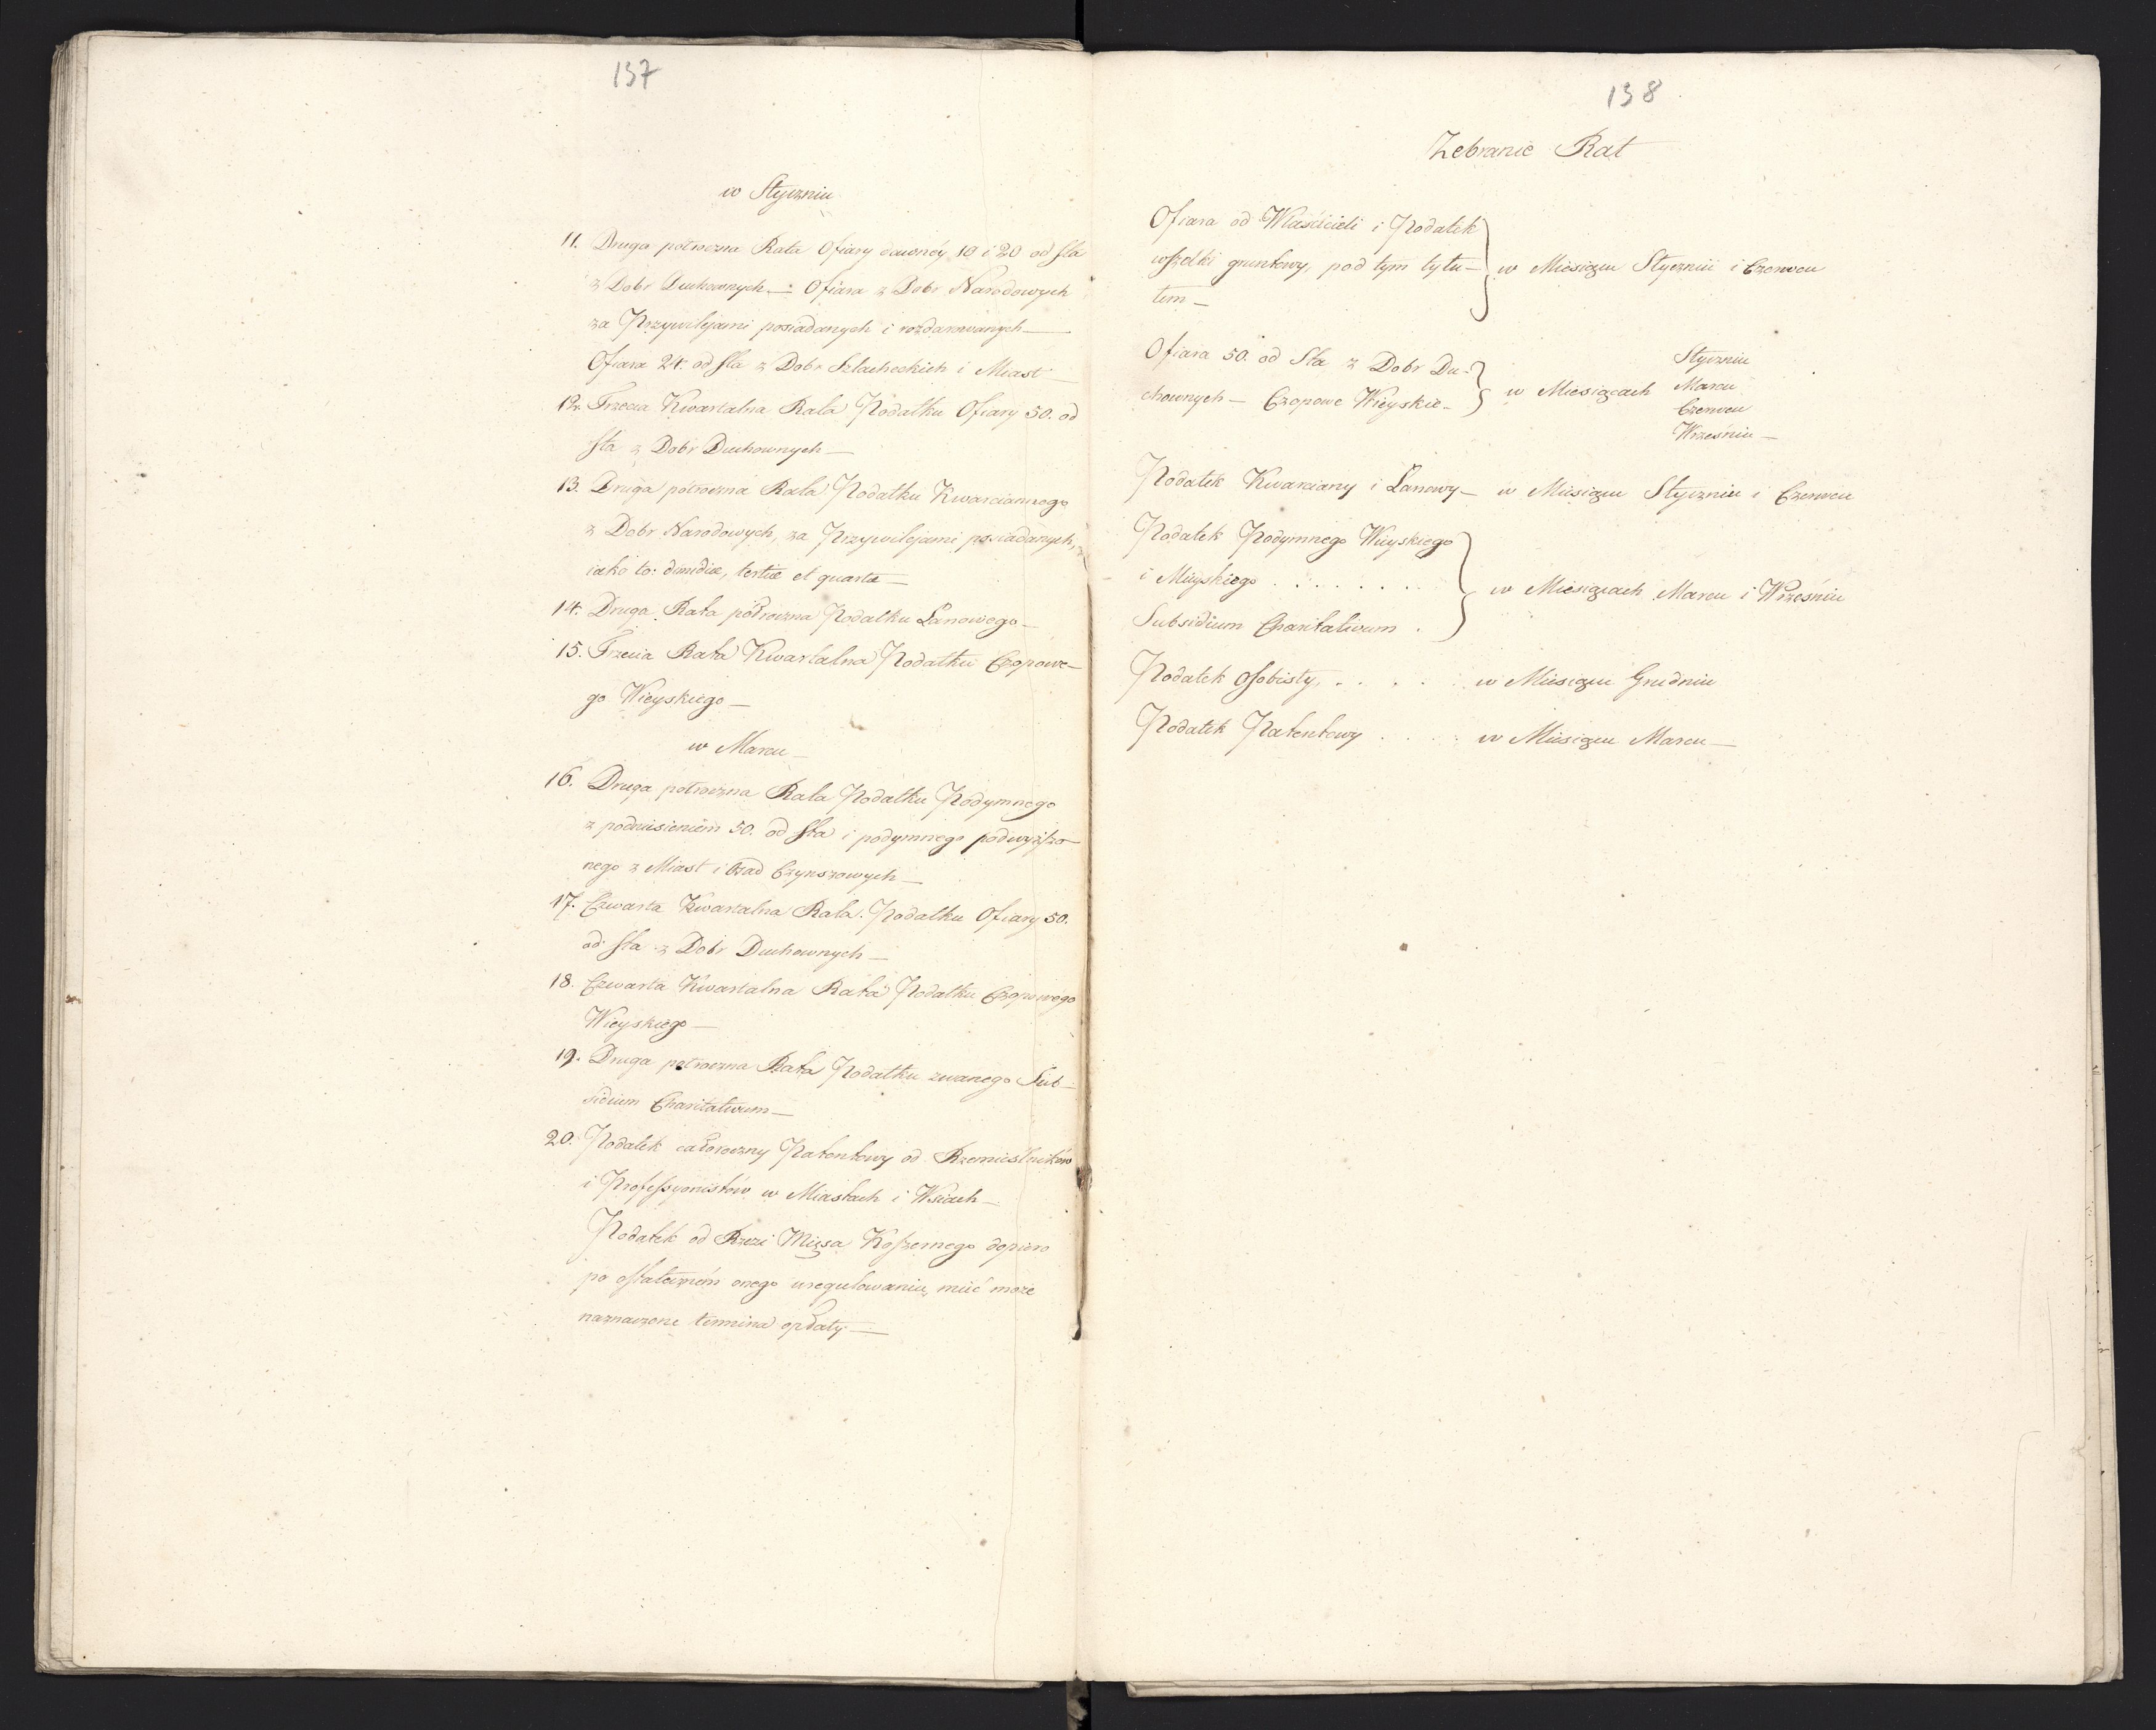 137
w Styczniu
11. Druga półroczna Rata Ofiary dawnéy 10 i 20 od sta
z Dobr Duchownych — Ofiara z Dobr Narodowych
za Przywilejami posiadanych i rozdarowanych —
Ofiara 24. od sta z Dobr Szlacheckich i Miast
12. Trzecia Kwartalna Rata Podatku Ofiary 50. od
sta z Dobr Duchownych —
13. Druga półroczna Rata Podatku Kwarciannego
z Dobr Narodowych, za Przywilejami posiadanych,
iako to: dimidiæ, tertiæ et quartæ —
14. Druga Rata półroczna Podatku Łanowego —
15. Trzecia Rata Kwartalna Podatku Czopowe-
go Wieyskiego —
w Marcu
16. Druga półroczna Rata Podatku Podymnego
z podniesieniem 50. od sta i podymnego podwyższo-
nego z Miast i Osad Czynszowych —
17. Czwarta Kwartalna Rata Podatku Ofiary 50.
od sta z Dobr Duchownych —
18. Czwarta Kwartalna Rata Podatku Czopowego
Wieyskiego —
19. Druga półroczna Rata Podatku zwanego Sub-
sidium Charitativum —
20. Podatek całoroczny Patentowy od Rzemieślników
i Professyonistów w Miastach i Wsiach —
Podatek od Rzezi Mięsa Koszernego dopiero
po ostateczném onego uregulowaniu, mieć może
naznaczone termina opłaty —
138
Zebranie Rat
Ofiara od Właścicieli i Podatek
wszelki gruntowy, pod tym tytu- w Miesiącu Styczniu i Czerwcu
łem —
Ofiara 50. od Sta z Dobr Du- Styczniu
chownych — Czopowe Wieyskie - w Miesiącach Marcu
Czerwcu
Wrześniu —
Podatek Kwarciany i Łanowy — w Miesiącu Styczniu i Czerwcu
Podatek Podymnego Wieyskiego
i Mieyskiego . . . . . . . w Miesiącach Marcu i Wrześniu
Subsidium Charitativum .
Podatek Osobisty . . . . . w Miesiącu Grudniu
Podatek Patentowy . . . . w Miesiącu Marcu —